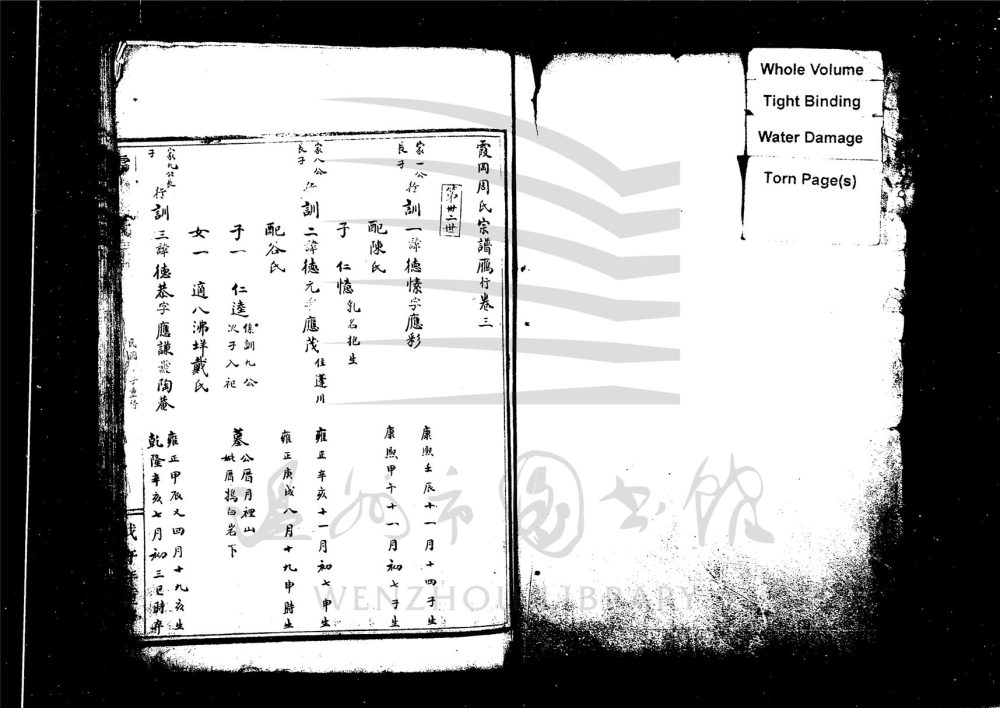 霞岡周氏宗譜鴈行卷三
第卅二世
家一公長子
行訓一諱德愫字應彩
康熙壬辰十一月十四子生
配陳氏
康熙甲午十一月初七子生
子 仁憶
乳名抱生
家八公長子
行訓二諱德元字應茂
住蓬川
雍正辛亥十一月初七申生
配谷氏
雍正庚戌八月十九申時生
子一 仁逵
係訓九公次子入祀
墓
公厝月裡山
妣厝搗臼岩下
女一 適八沸垟戴氏
家九公長子
行訓三諱德恭字應謙號陶菴
雍正甲辰又四月十九亥生
乾隆辛亥七月初三巳時卒
民國
子重修
Whole Volume
Tight Binding
Water Damage
Torn Page(s)
溫州市圖書館
WENZHOU LIBRARY